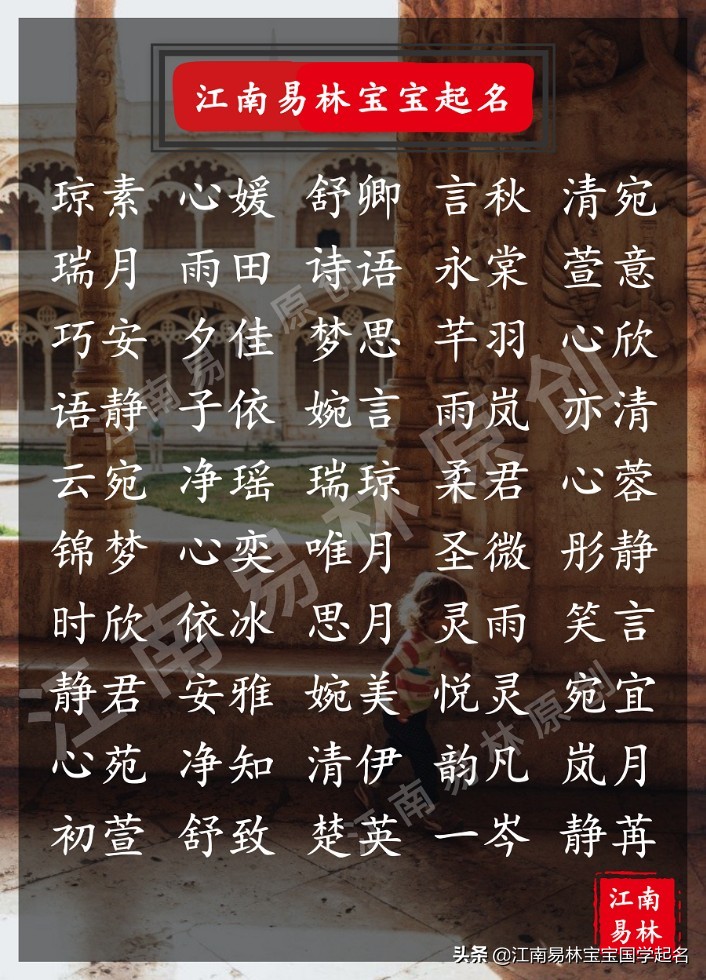 江南易林宝宝起名
琼素 心媛 舒卿 言秋 清宛
瑞月 雨田 诗语 永棠 萱意
巧安 夕佳 梦思 芊羽 心欣
语静 子依 婉言 雨岚 亦清
云宛 净瑶 瑞琼 柔君 心蓉
锦梦 心奕 唯月 圣微 彤静
时欣 依冰 思月 灵雨 笑言
静君 安雅 婉美 悦灵 宛宜
心苑 净知 清伊 韵凡 岚月
初萱 舒致 楚英 一岑 静苒
江南易林原创
江南易林原创
江南易林原创
江南
易林
头条 @江南易林宝宝国学起名